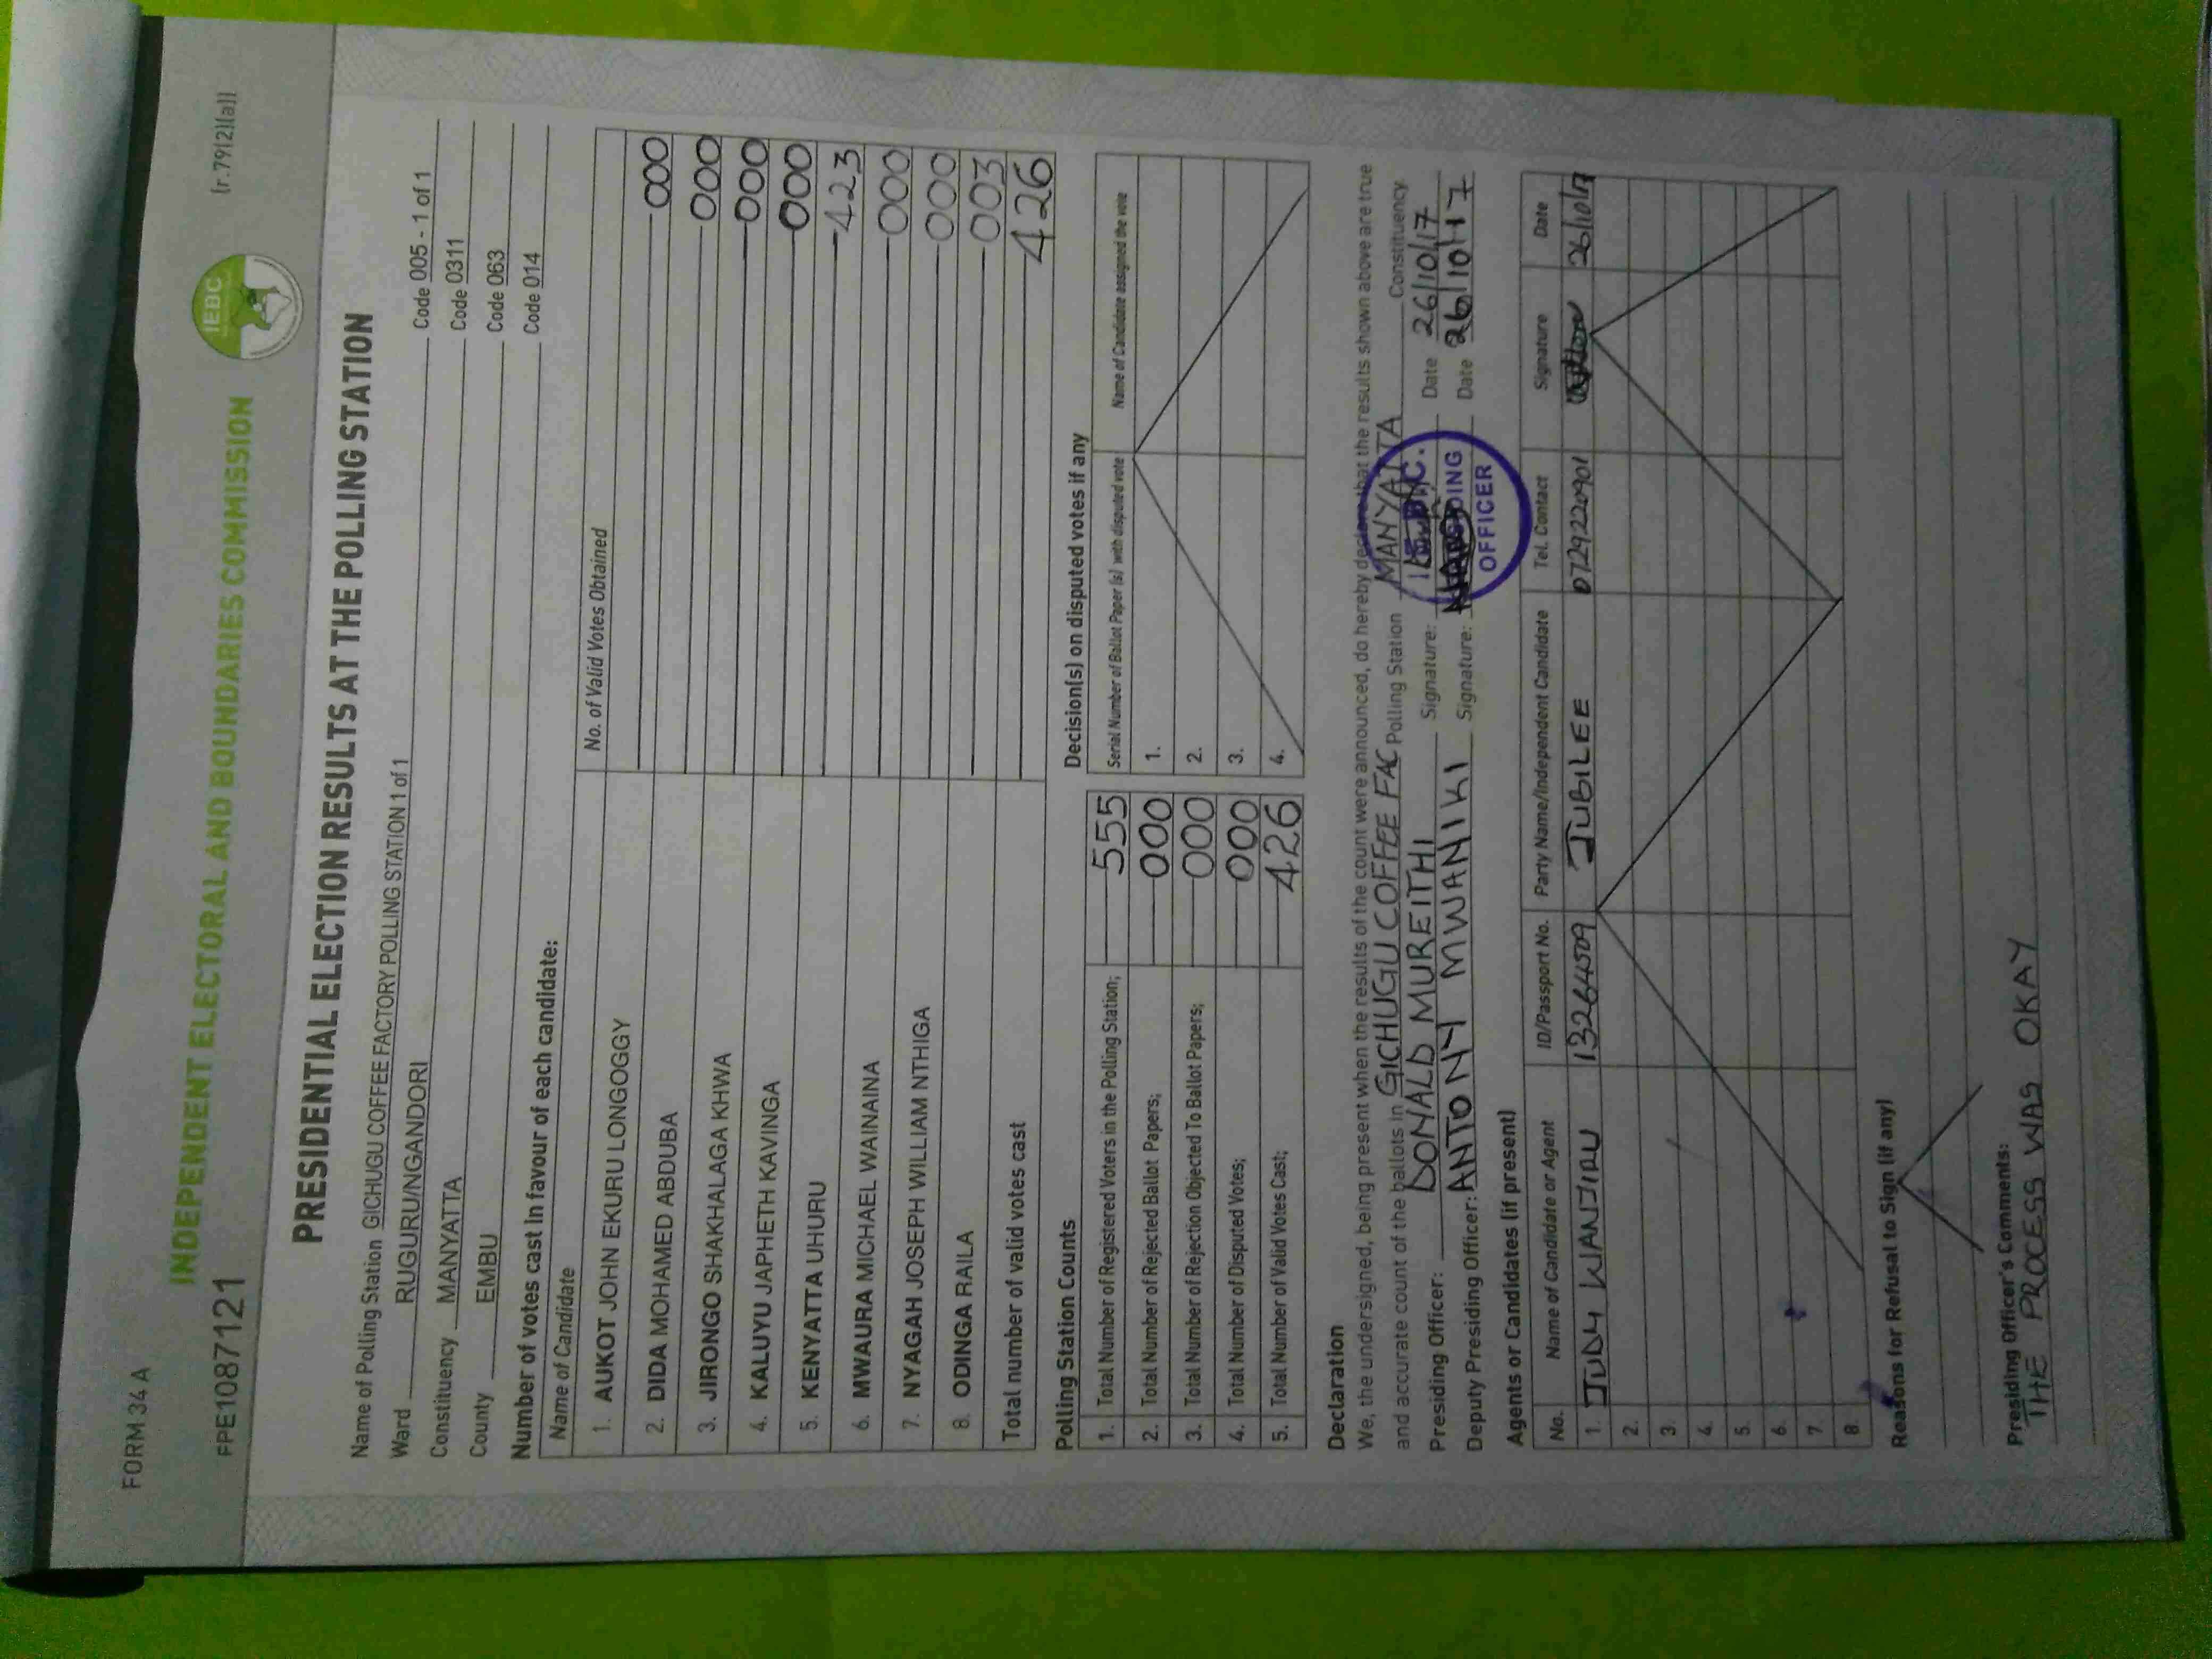 FORM 34 A
(r.79(2)(a))
INDEPENDENT ELECTORAL AND BOUNDARIES COMMISSION
IEBC
FPE1087121
PRESIDENTIAL ELECTION RESULTS AT THE POLLING STATION
Name of Polling Station GICHUGU COFFEE FACTORY POLLING STATION 1 of 1 Code 005 - 1 of 1
Ward RUGURU/NGANDORI Code 0311
Constituency MANYATTA Code 063
County EMBU Code 014
Number of votes cast in favour of each candidate:
Name of Candidate No. of Valid Votes Obtained
1. AUKOT JOHN EKURU LONGOGGY 000
2. DIDA MOHAMED ABDUBA 000
3. JIRONGO SHAKHALAGA KHWA 000
4. KALUYU JAPHETH KAVINGA 000
5. KENYATTA UHURU 423
6. MWAURA MICHAEL WAINAINA 000
7. NYAGAH JOSEPH WILLIAM NTHIGA 000
8. ODINGA RAILA 003
Total number of valid votes cast 426
Polling Station Counts
1. Total Number of Registered Voters in the Polling Station; 555
2. Total Number of Rejected Ballot Papers; 000
3. Total Number of Rejection Objected To Ballot Papers; 000
4. Total Number of Disputed Votes; 000
5. Total Number of Valid Votes Cast; 426
Decision(s) on disputed votes if any
Serial Number of Ballot Paper (s) with disputed vote Name of Candidate assigned the vote
1.
2.
3.
4.
Declaration
We, the undersigned, being present when the results of the count were announced, do hereby declare that the results shown above are true
and accurate count of the ballots in GICHUGU COFFEE FAC Polling Station MANYATTA Constituency.
Presiding Officer: DONALD MUREITHI Signature: Date 26/10/17
Deputy Presiding Officer: ANTONY MWANIKI Signature: Date 26/10/17
OFFICER
Agents or Candidates (if present)
No. Name of Candidate or Agent ID/Passport No. Party Name/Independent Candidate Tel. Contact Signature Date
1. JUDY WANJIRU 13264509 JUBILEE 0729220901 26/10/17
2.
3.
4.
5.
6.
7.
8.
Reasons for Refusal to Sign (if any)
Presiding Officer's Comments:
THE PROCESS WAS OKAY